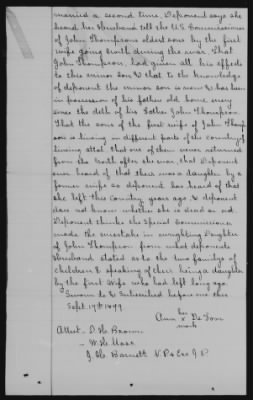 married a second time. Deponent says she
heard her Husband tell the U.S. Commissioner
of John Thompsons oldest sons by the first
wife going South during the war. That
John Thompson, had given all his effects
to this minor son & that to the knowledge
of deponent the minor son is now & has been
in possession of his father old home ever
since the deth of his Father John Thompson.
That the sons of the first wife of John Thomp
son is living in different parts of the country, if
living attal. that one of them never returned
from the South after the war, that Deponent
ever heard of that their was a daughter by a
former wife so deponent has heard of that
she left this Country years ago & deponent
does not know whether she is dead or not.
Deponent thinks the Special Commissioner
made the mistake in Daughter
of John Thompson from what deponents
Husband stated as to the two familys of
children & speaking of their being a daughter
by the first Wife who had left long ago.
Sworn to & Subscribed before me this
Sept. 19th 1879
her
Ann x De
mark
Attest - D. H. Brown
- W. H.
J. H. Barnett N.P. & Exo J.P.